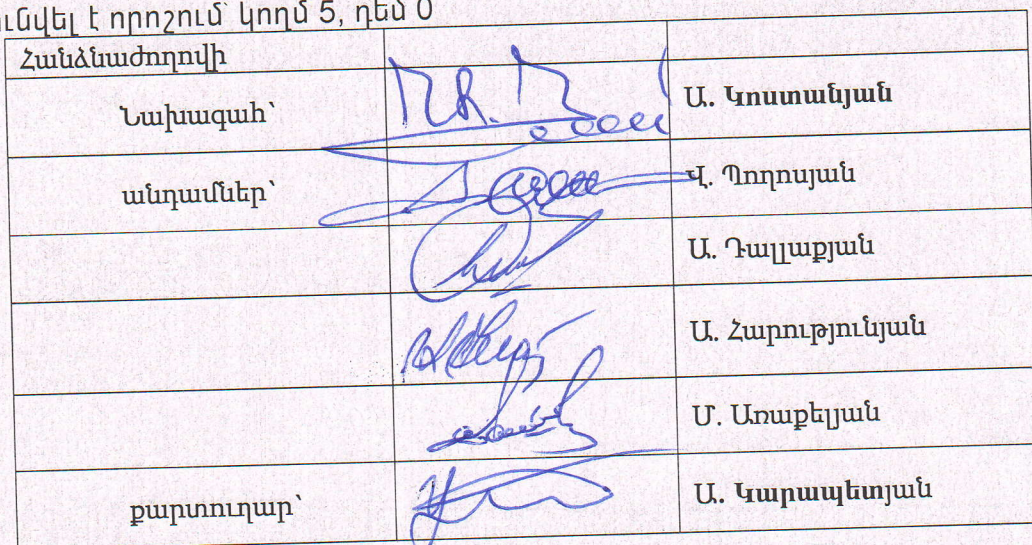 ունվել է որոշում կողմ 5, դեմ 0
Հանձնաժողովի
Նախագահ՝ Ա. Կոստանյան
անդամներ՝ Վ. Պողոսյան
Ա. Դալլաքյան
Ա. Հարությունյան
Մ. Առաքելյան
քարտուղար՝ Ա. Կարապետյան